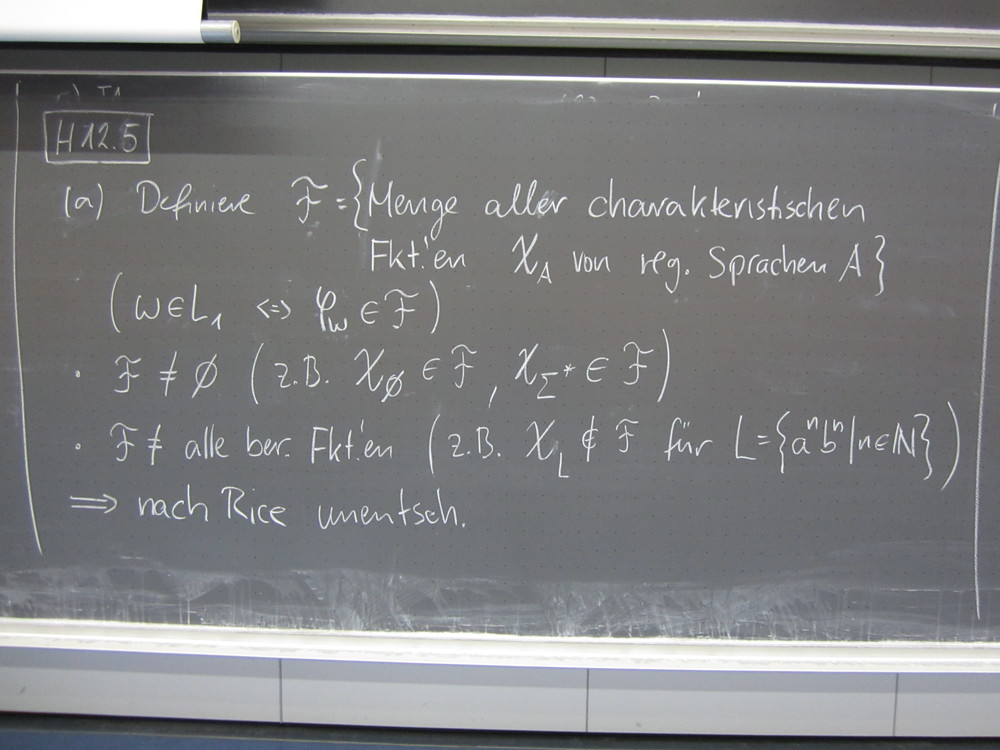 H 12.5
(a) Definiere ℱ = {Menge aller charakteristischen
Fkt'en χ_A von reg. Sprachen A}
(w∈L₁ <=> φ_w ∈ ℱ)
· ℱ ≠ ∅ (z.B. χ_∅ ∈ ℱ, χ_Σ* ∈ ℱ)
· ℱ ≠ alle ber. Fkt'en (z.B. χ_L ∉ ℱ für L = {aⁿbⁿ | n∈ℕ})
⟹ nach Rice unentsch.